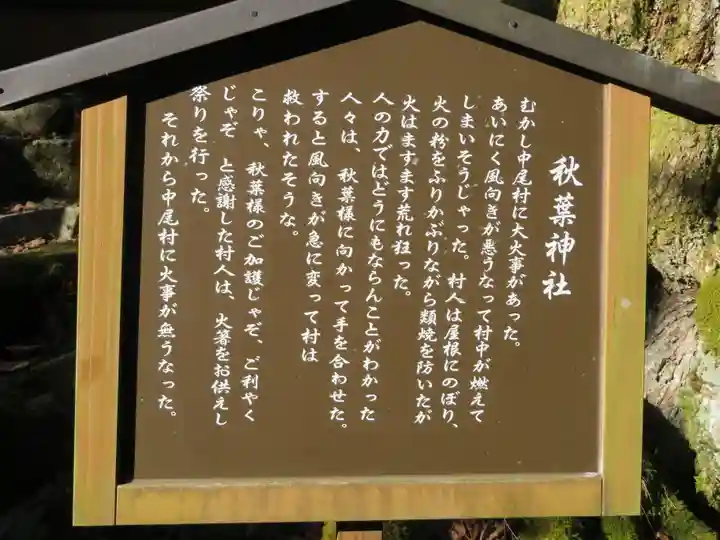 秋葉神社
むかし中尾村に大火事があった。
あいにく風向きが悪うなって村中が燃えて
しまいそうじゃった。村人は屋根にのぼり、
火の粉をふりかぶりながら類焼を防いだが
火はますます荒れ狂った。
人の力ではどうにもならんことがわかった
人々は、秋葉様に向かって手を合わせた。
すると風向きが急に変って村は
救われたそうな。
こりゃ、秋葉様のご加護じゃぞ、ご利やく
じゃぞ と感謝した村人は、火箸をお供えし
祭りを行った。
それから中尾村に火事が無うなった。